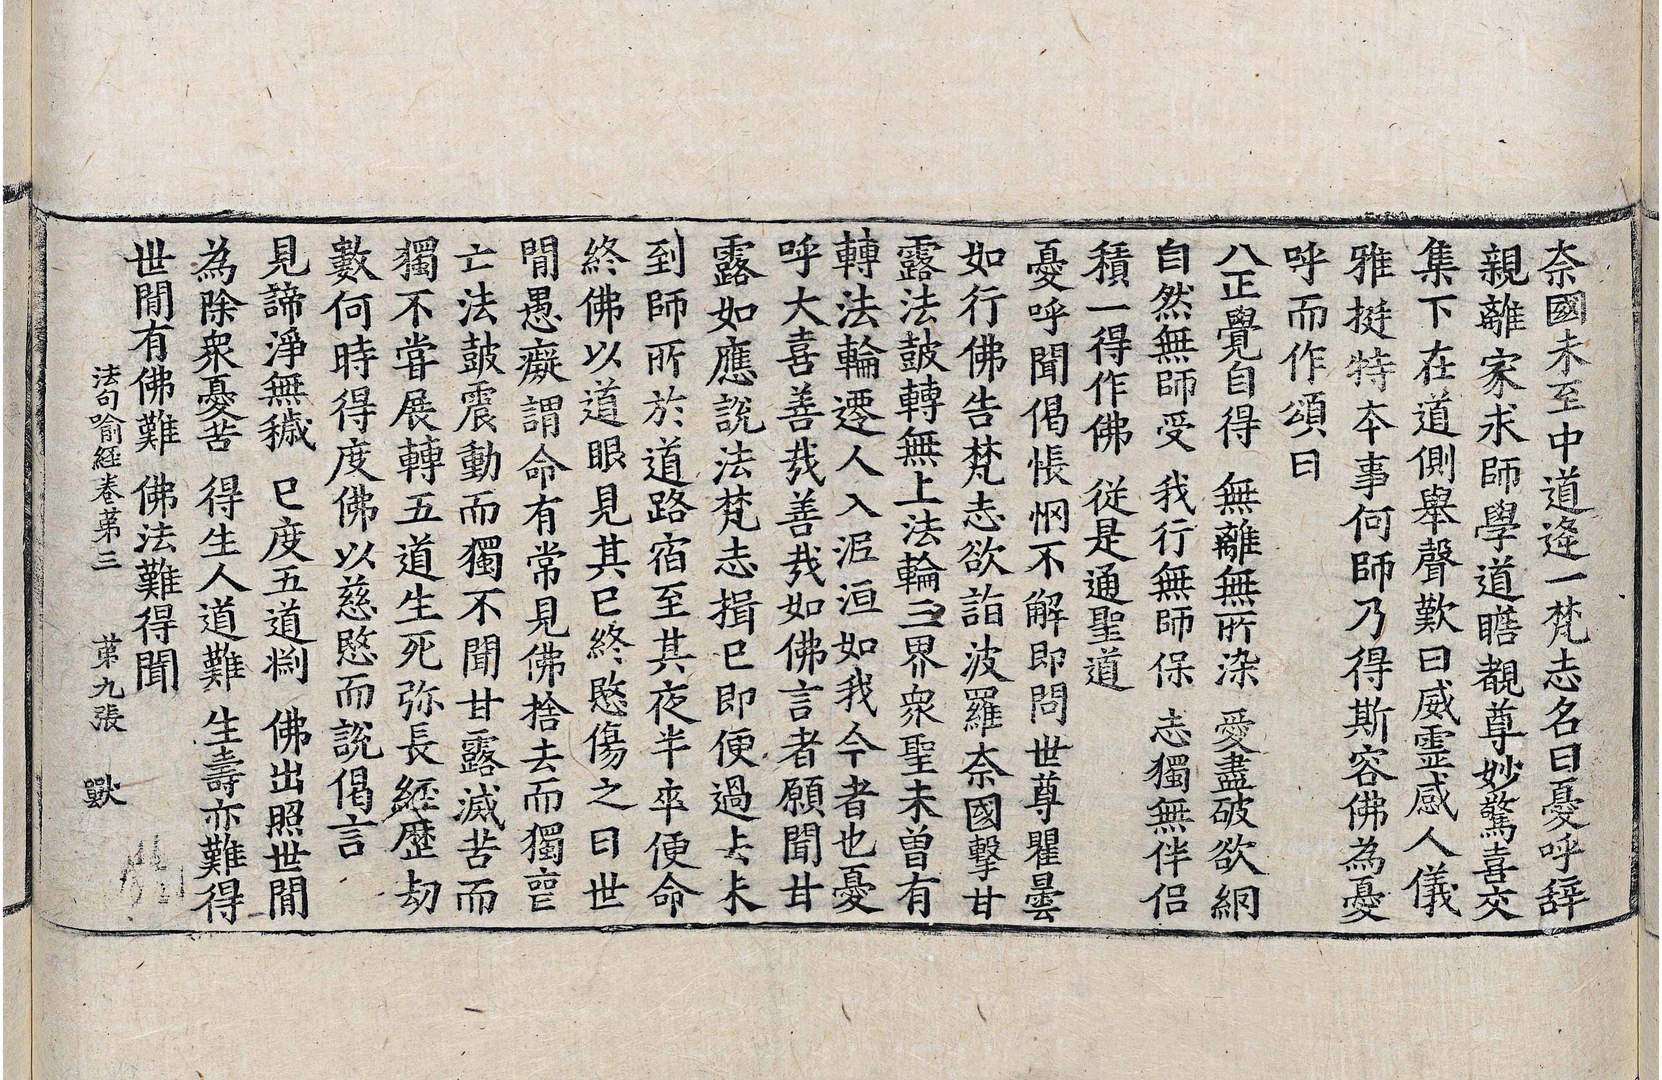 奈國未至中道逢一梵志名曰憂呼辝
親離家求師學道瞻覩尊妙驚喜交
集下在道側舉聲歎曰威霊感人儀
雅挺特本事何師乃得斯容佛為憂
呼而作頌曰
八正覺自得 無離無所染 愛盡破欲網
自然無師受 我行無師保 志獨無伴侣
積一得作佛 從是通聖道
憂呼聞偈悵惘不解即問世尊瞿曇
如行佛告梵志欲詣波羅奈國擊甘
露法鼓轉無上法輪三界衆聖未曽有
轉法輪遷人入泥洹如我今者也憂
呼大喜善㢤善㢤如佛言者願聞甘
露如應説法梵志揖已即便過去未
到師所於道路宿至其夜半卒便命
終佛以道眼見其已終愍傷之曰世
閒愚癡謂命有常見佛捨去而獨喪
亡法鼓震動而獨不聞甘露滅苦而
獨不甞展轉五道生死弥長經歴劫
數何時得度佛以慈愍而説偈言
見諦淨無穢 已度五道淵 佛出照世閒
為除衆憂苦 得生人道難 生壽亦難得
世閒有佛難 佛法難得聞
法句喻經卷第三 第九張 獸